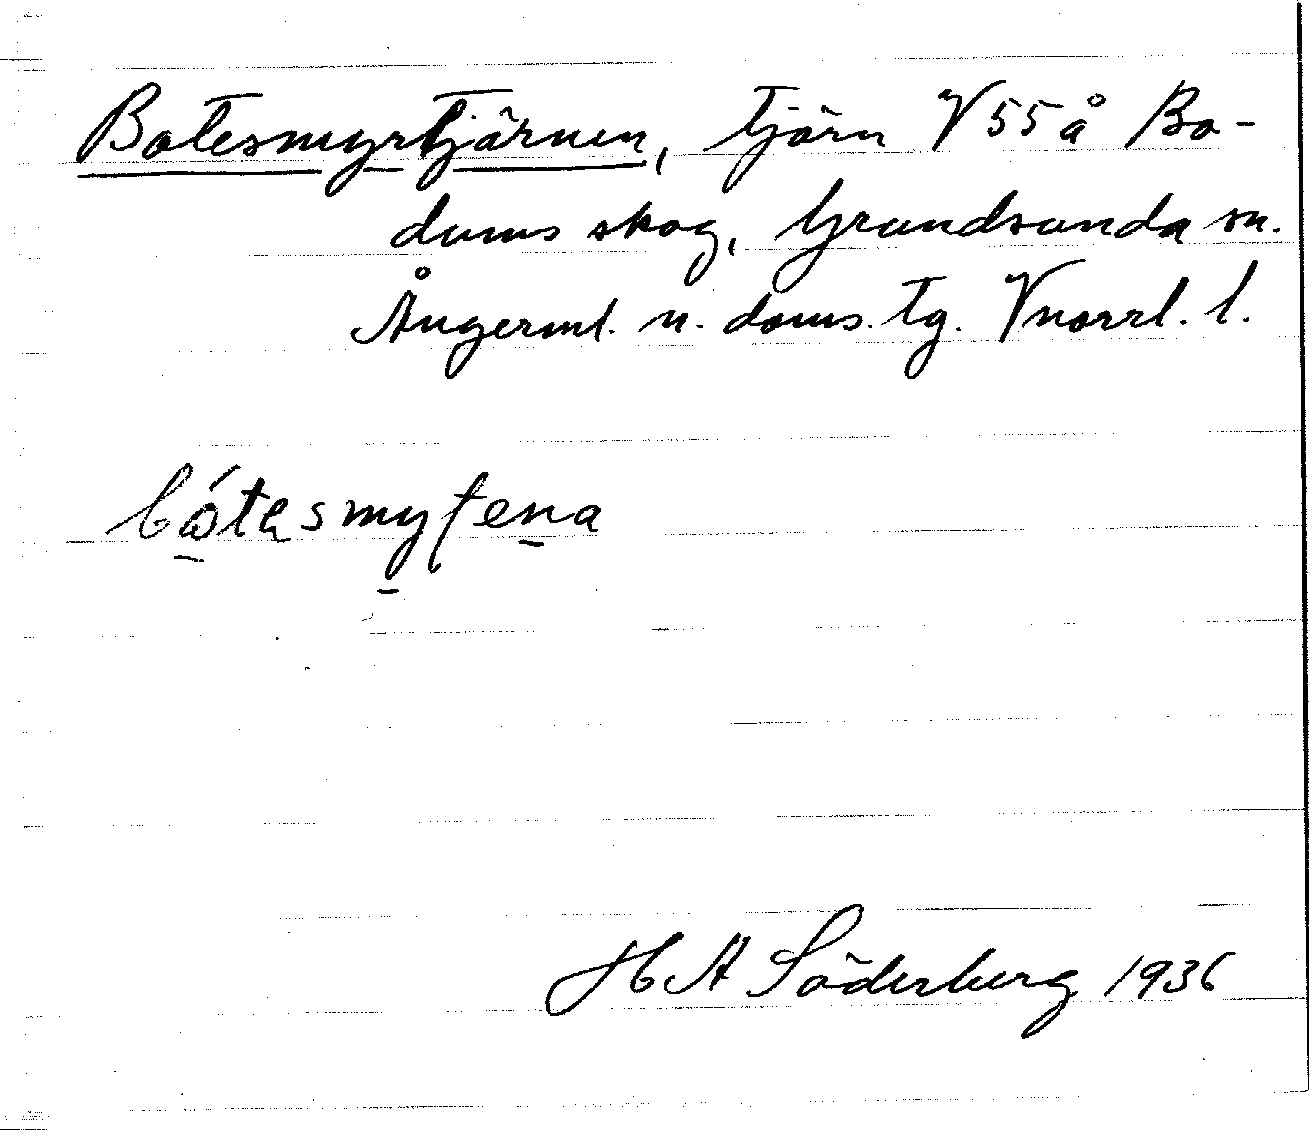 Botesmyrtjärnen, tjärn V 55 å Bo-
dums skog, Grundsunda sn.
Ångerml. n. doms. tg. Vnorrl. l.
H A Söderberg 1936